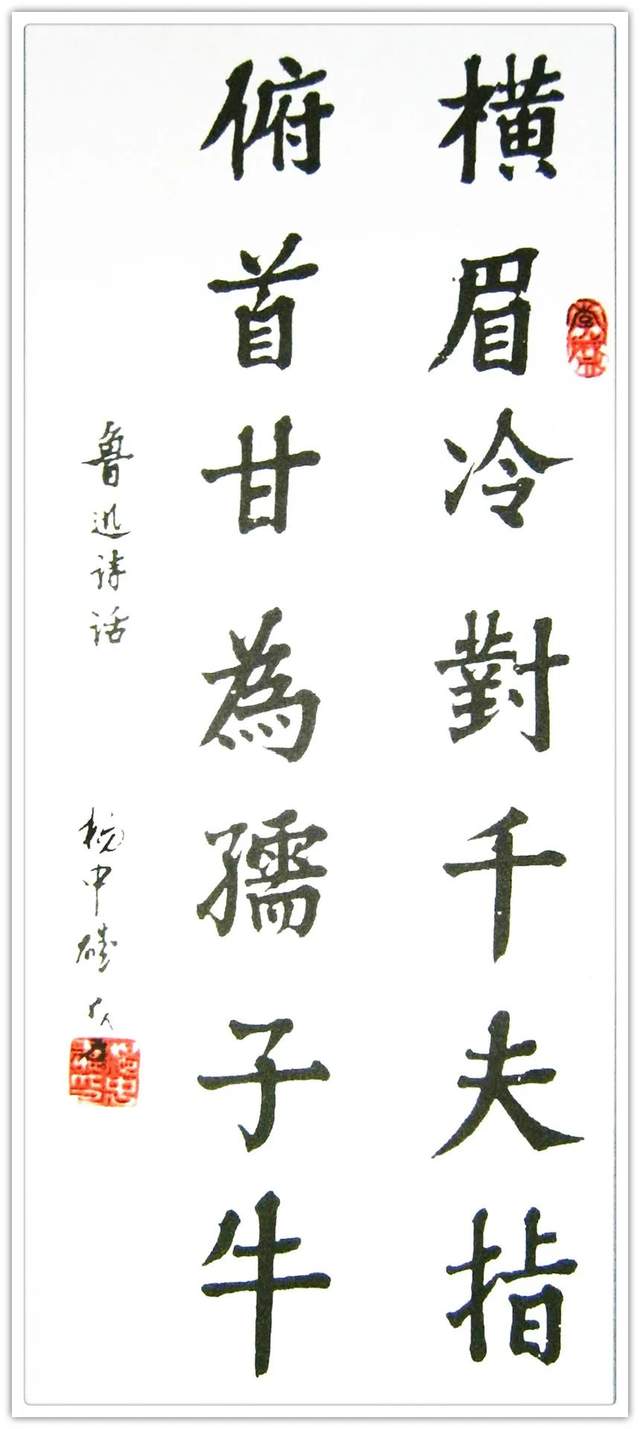 橫眉冷對千夫指
俯首甘為孺子牛
魯迅诗话